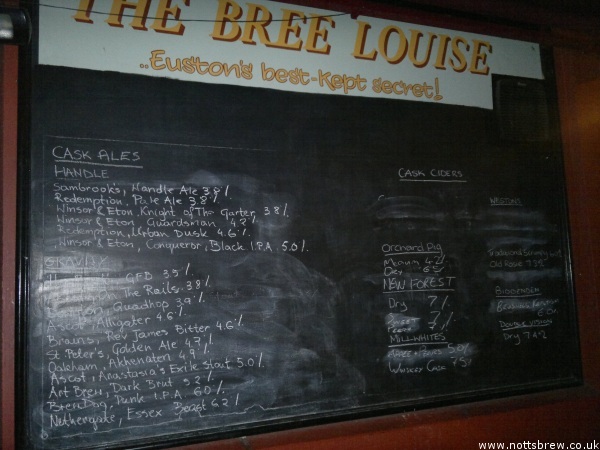 THE BREE LOUISE
..Euston's best-kept secret!
CASK ALES
HANDLE
Sambrook's, Wandle Ale 3.8%
Redemption, Pale Ale 3.8%
Winsor & Eton, Knight of The Garter, 3.8%
Winsor & Eton, Guardsman 4.2%
Redemption, Urban Dusk 4.6%
Winsor & Eton, Conqueror, Black I.P.A. 5.0%
GRAVITY
GFB 3.5%
The Rails 3.8%
Quadhop 3.9%
Ascot, Alligator 4.6%
Brains, Rev James Bitter 4.6%
St. Peter's, Golden Ale 4.7%
Oakham, Akhenaten 4.9%
Ascot, Anastasia's Exile Stout 5.0%
Art Brew, Dark Brut 5.2%
BrewDog, Punk I.P.A. 6.0%
Nethergate, Essex Beast 6.2%
CASK CIDERS
Orchard Pig
Dry
NEW FOREST
Dry 7%
7%
MILLWHITES
Whiskey Cask
WESTONS
Old Rosie 7.3%
BIDDENDEN
DOUBLE VISION
Dry 7.4%
www.nottsbrew.co.uk